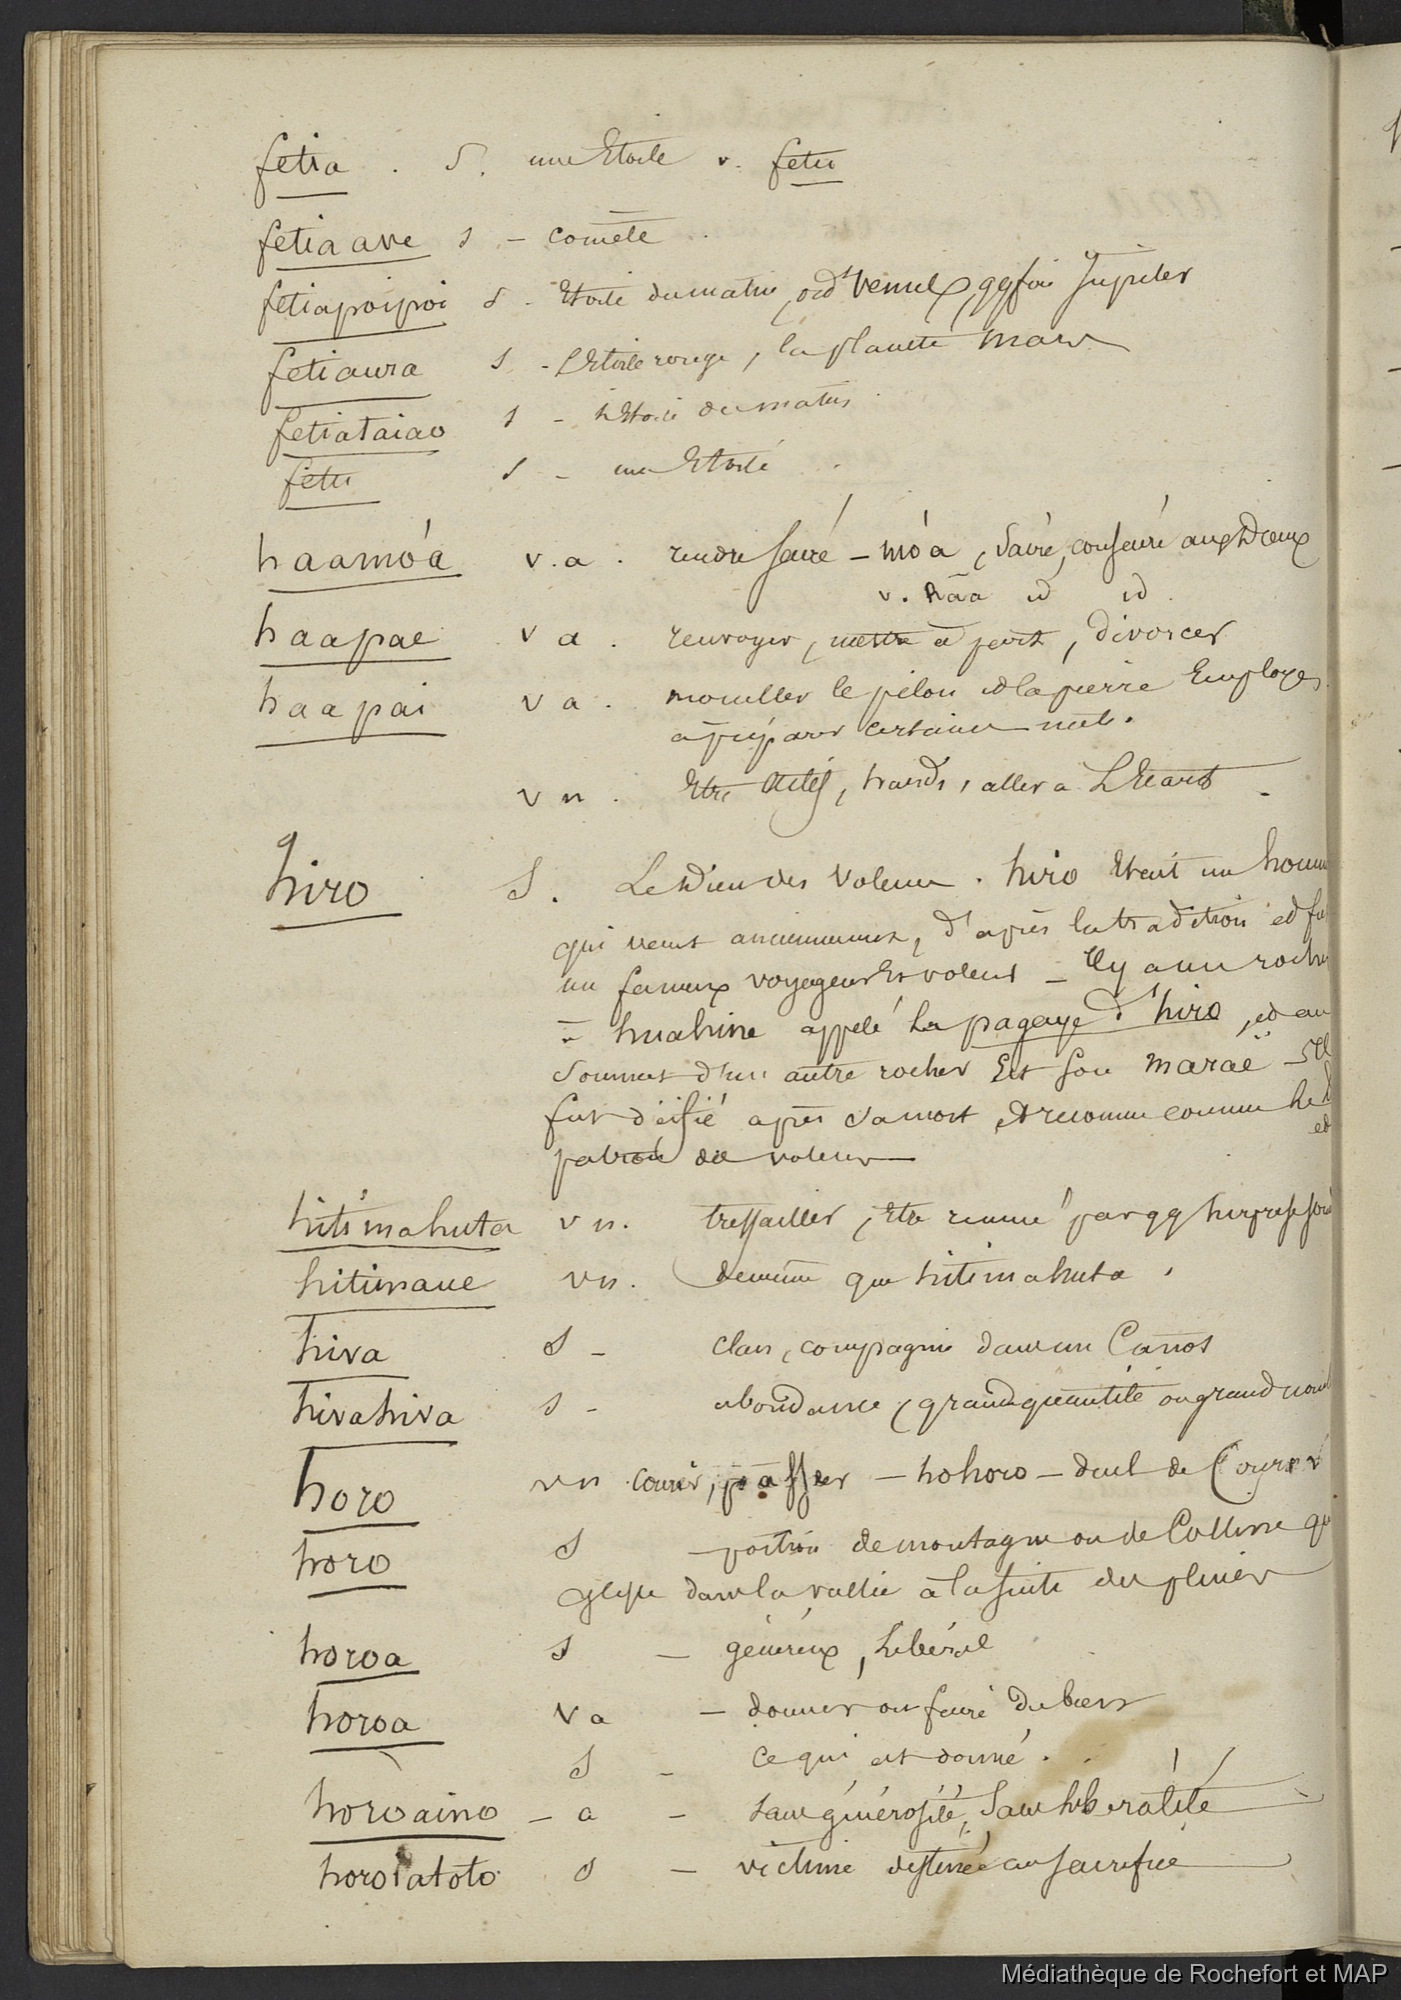 fetia . S. une Etoile v. fetu
fetia ave s - comète .
fetiapoipoi s - Etoile du matin, ord^t Venus, qq fois Jupiter
fetiaura s - L'Etoile rouge, la planète Mars
fetiataiao s - L'Etoile du matin
fetu s - une Etoile .
haamóa v.a. rendre sacré - móa, sacré, consacré aux Dieux
v. raa id id.
haapae v a . renvoyer, mettre à part, divorcer
haapai v a . mouiller le pilon et la pierre Employés
à préparer certains mets.
v n . Etre, hardi, aller à L'Ecart -
hiro S. Le Dieu des Voleurs . hiro Etait un homme
qui vécut anciennement, d'après la tradition et fut
un fameux voyageur Et voleur - Il y a un rocher
à huahine appelé La pagaye d'hiro, et au
sommet d'un autre rocher Est son maraë - Il
fut déifié après sa mort et reconnu comme Le
patron des voleurs
hitimahuta v n. tressaillir, Etre remué par qq surprise
hitimaue v n. de même que hitimahuta .
hiva S - clan, compagnie dans un Canot
hivahiva s - abondance, grande quantité ou grand nom
horo v n courir, passer - hohoro - duel de Courir
horo S - portion de montagne ou de Colline qui
glisse dans la vallée à la suite des pluies
horoa S - généreux, Libéral
horoa v a - donner ou faire du bien
S - ce qui est donné .
horoaino - a - sans générosité, sans libéralité
horoiatoto s - victime destinée au sacrifice